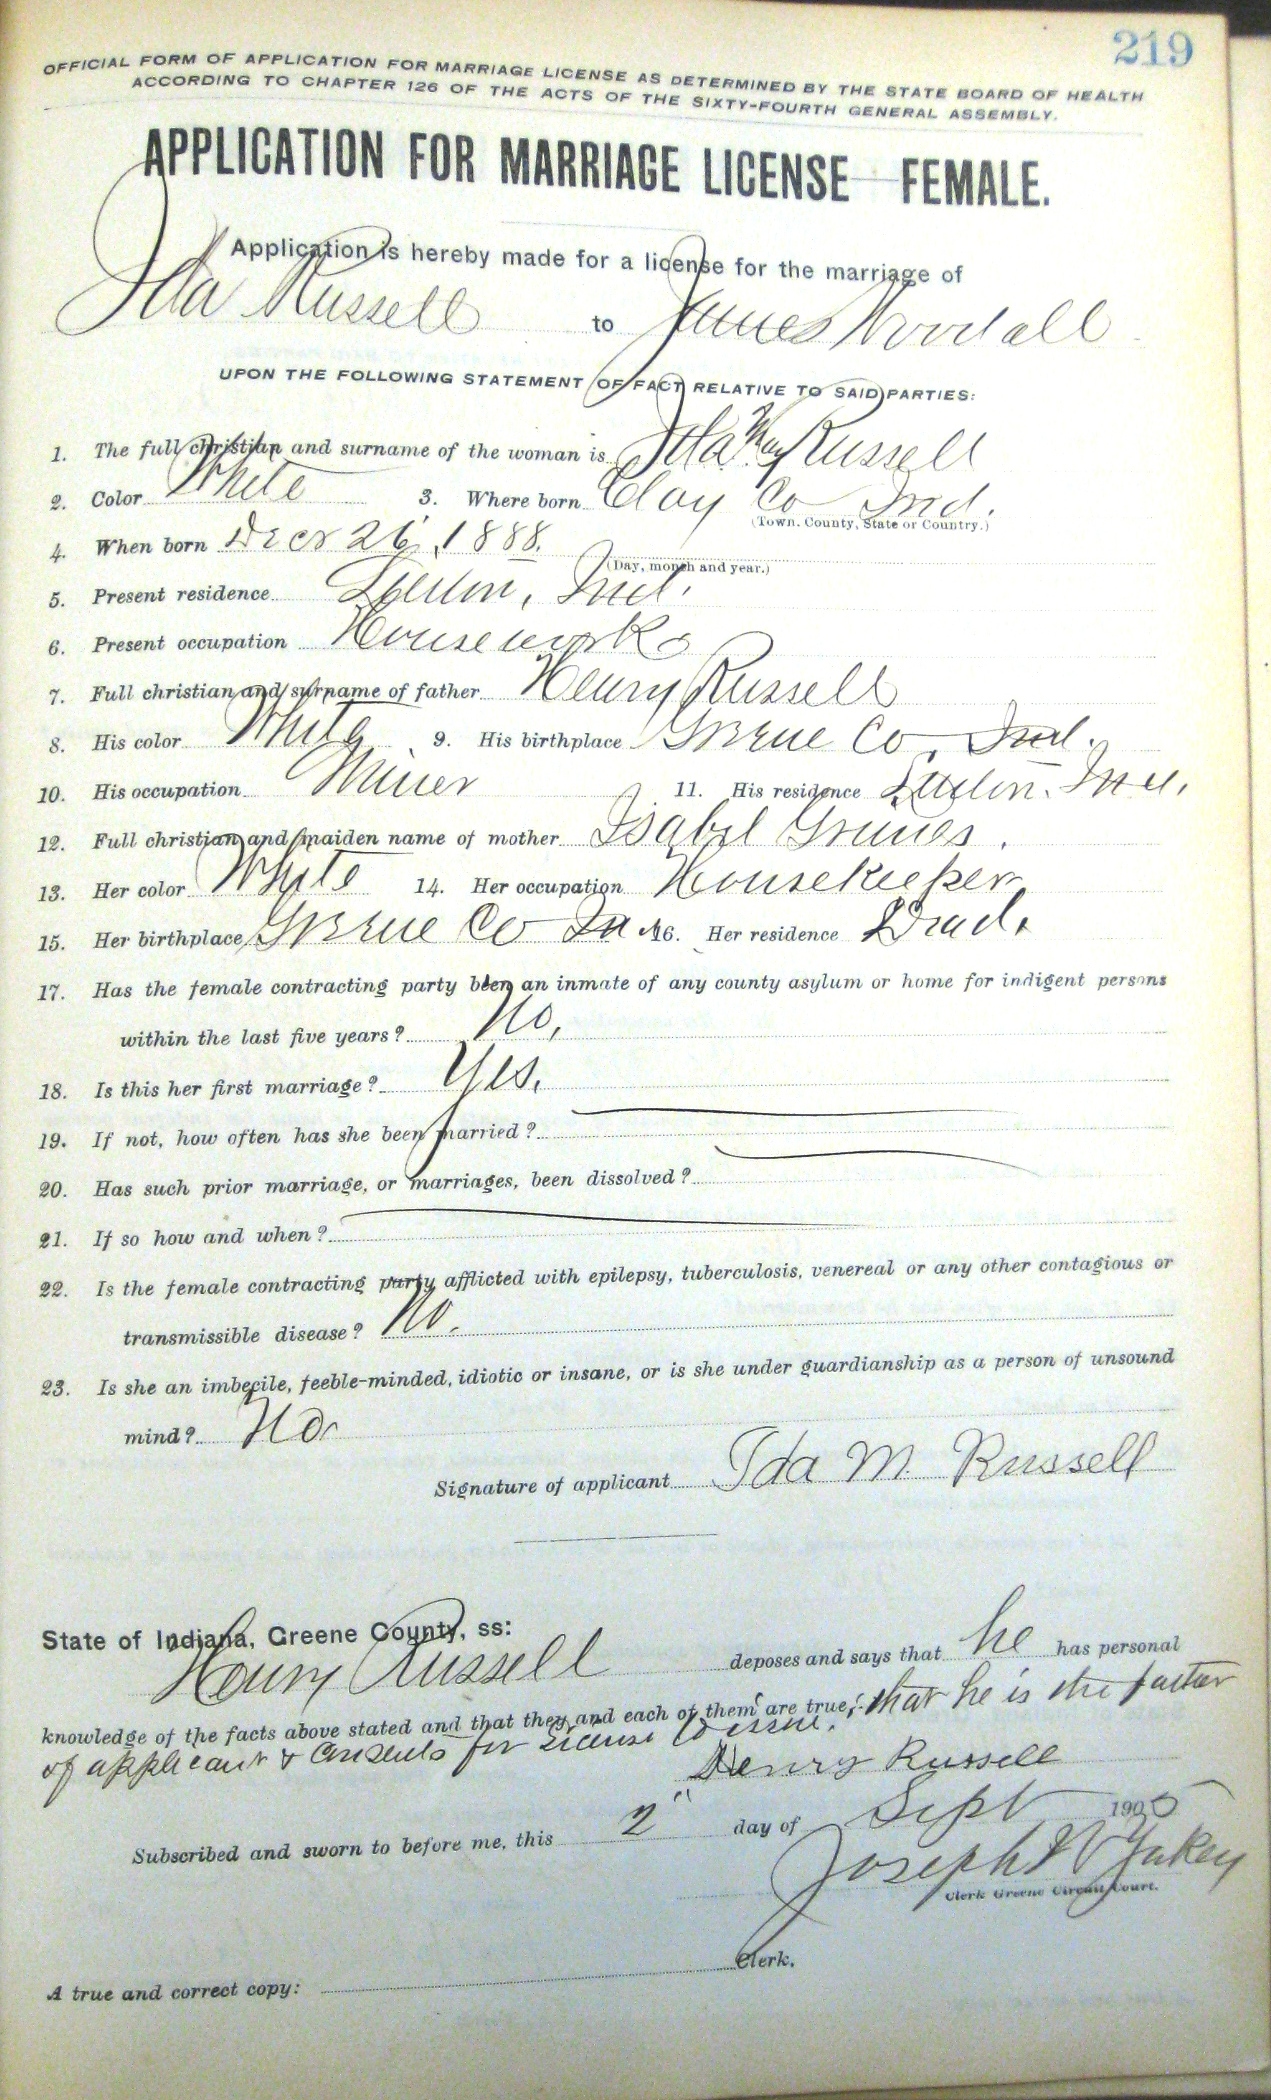 219
OFFICIAL FORM OF APPLICATION FOR MARRIAGE LICENSE AS DETERMINED BY THE STATE BOARD OF HEALTH
ACCORDING TO CHAPTER 126 OF THE ACTS OF THE SIXTY-FOURTH GENERAL ASSEMBLY.
APPLICATION FOR MARRIAGE LICENSE FEMALE.
Application is hereby made for a license for the marriage of
Ida Russell to James Woodall
UPON THE FOLLOWING STATEMENT OF FACT RELATIVE TO SAID PARTIES:
1. The full christian and surname of the woman is Ida May Russell
2. Color White 3. Where born Clay Co Ind.
(Town. County, State or Country.)
4. When born Decr 26, 1888.
(Day, month and year.)
5. Present residence Linton, Ind.
6. Present occupation Housework
7. Full christian and surname of father Henry Russell
8. His color White 9. His birthplace Greene Co, Ind.
10. His occupation Miner 11. His residence Linton. Ind.
12. Full christian and maiden name of mother Isabel Grimes.
13. Her color White 14. Her occupation Housekeeper
15. Her birthplace Greene Co In 16. Her residence Dead.
17. Has the female contracting party been an inmate of any county asylum or home for indigent persons
within the last five years? No,
18. Is this her first marriage? Yes.
19. If not, how often has she been married?
20. Has such prior marriage, or marriages, been dissolved?
21. If so how and when?
22. Is the female contracting party afflicted with epilepsy, tuberculosis, venereal or any other contagious or
transmissible disease? No.
23. Is she an imbecile, feeble-minded, idiotic or insane, or is she under guardianship as a person of unsound
mind? No
Signature of applicant Ida M. Russell
State of Indiana, Greene County, ss:
Henry Russell deposes and says that he has personal
knowledge of the facts above stated and that they and each of them are true; that he is the father
of applicant & consents for license to issue.
Henry Russell
Subscribed and sworn to before me, this 2" day of Sept 1905
Joseph W Yakey
Clerk Greene Circuit Court.
Clerk.
A true and correct copy: